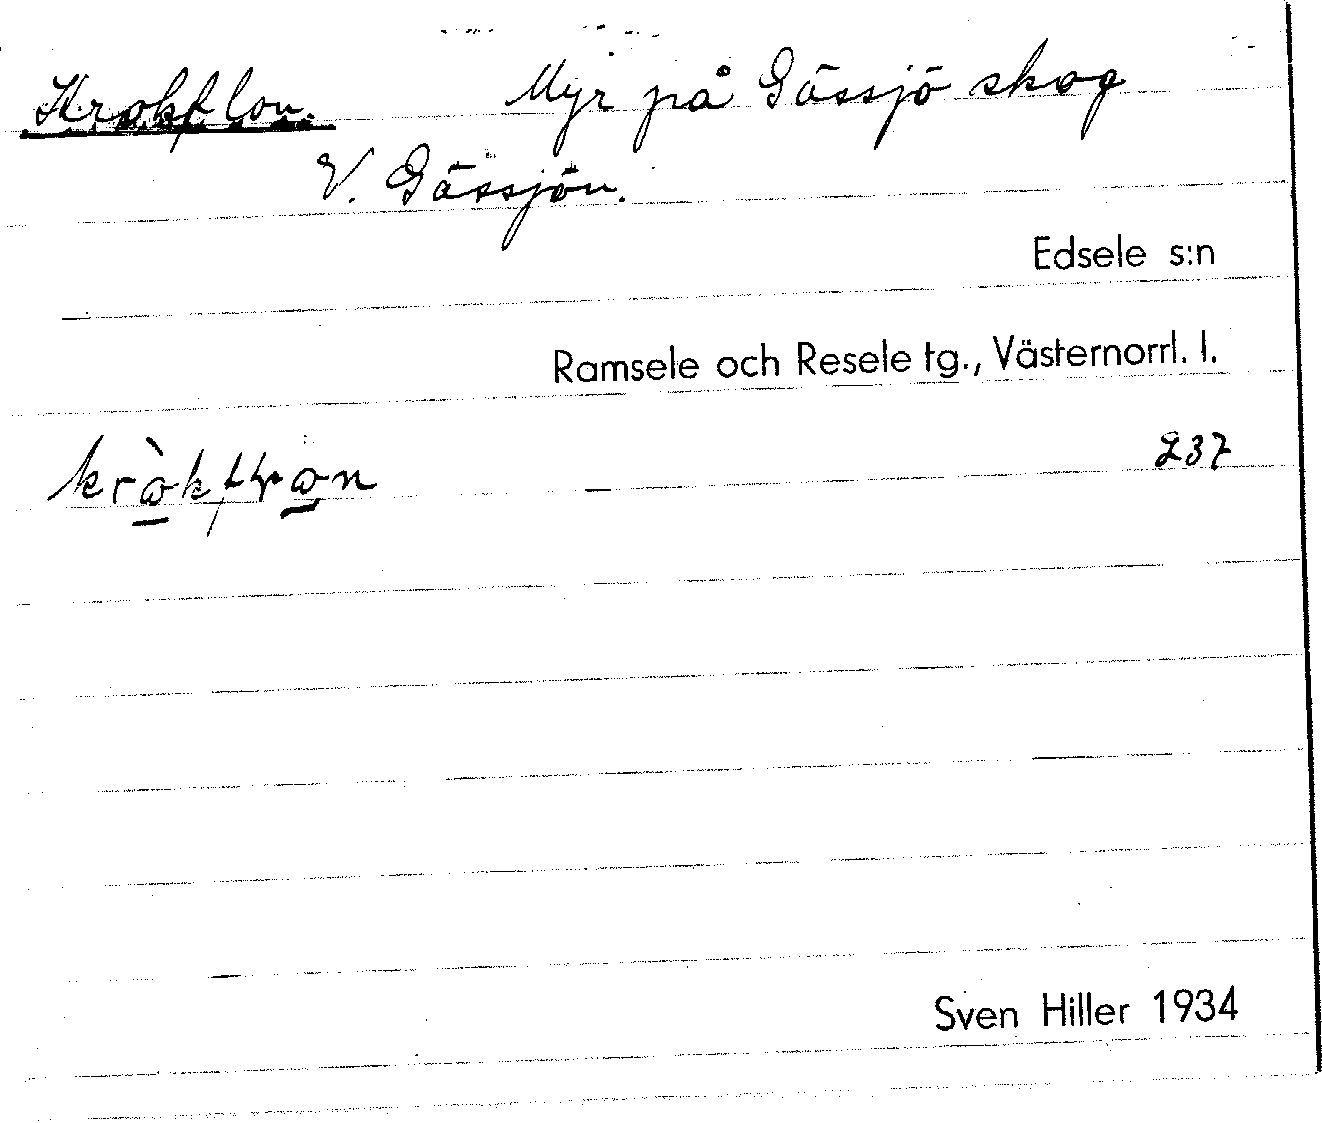 Krokflon. Myr på Gåssjö skog
V. Gåssjön.
Edsele s:n
Ramsele och Resele tg., Västernorrl. l.
237
Sven Hiller 1934